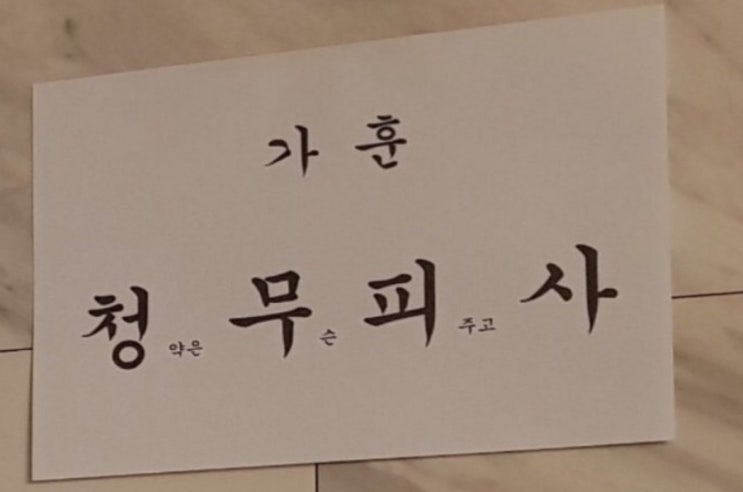 가훈
청약은 무슨 피주고 사